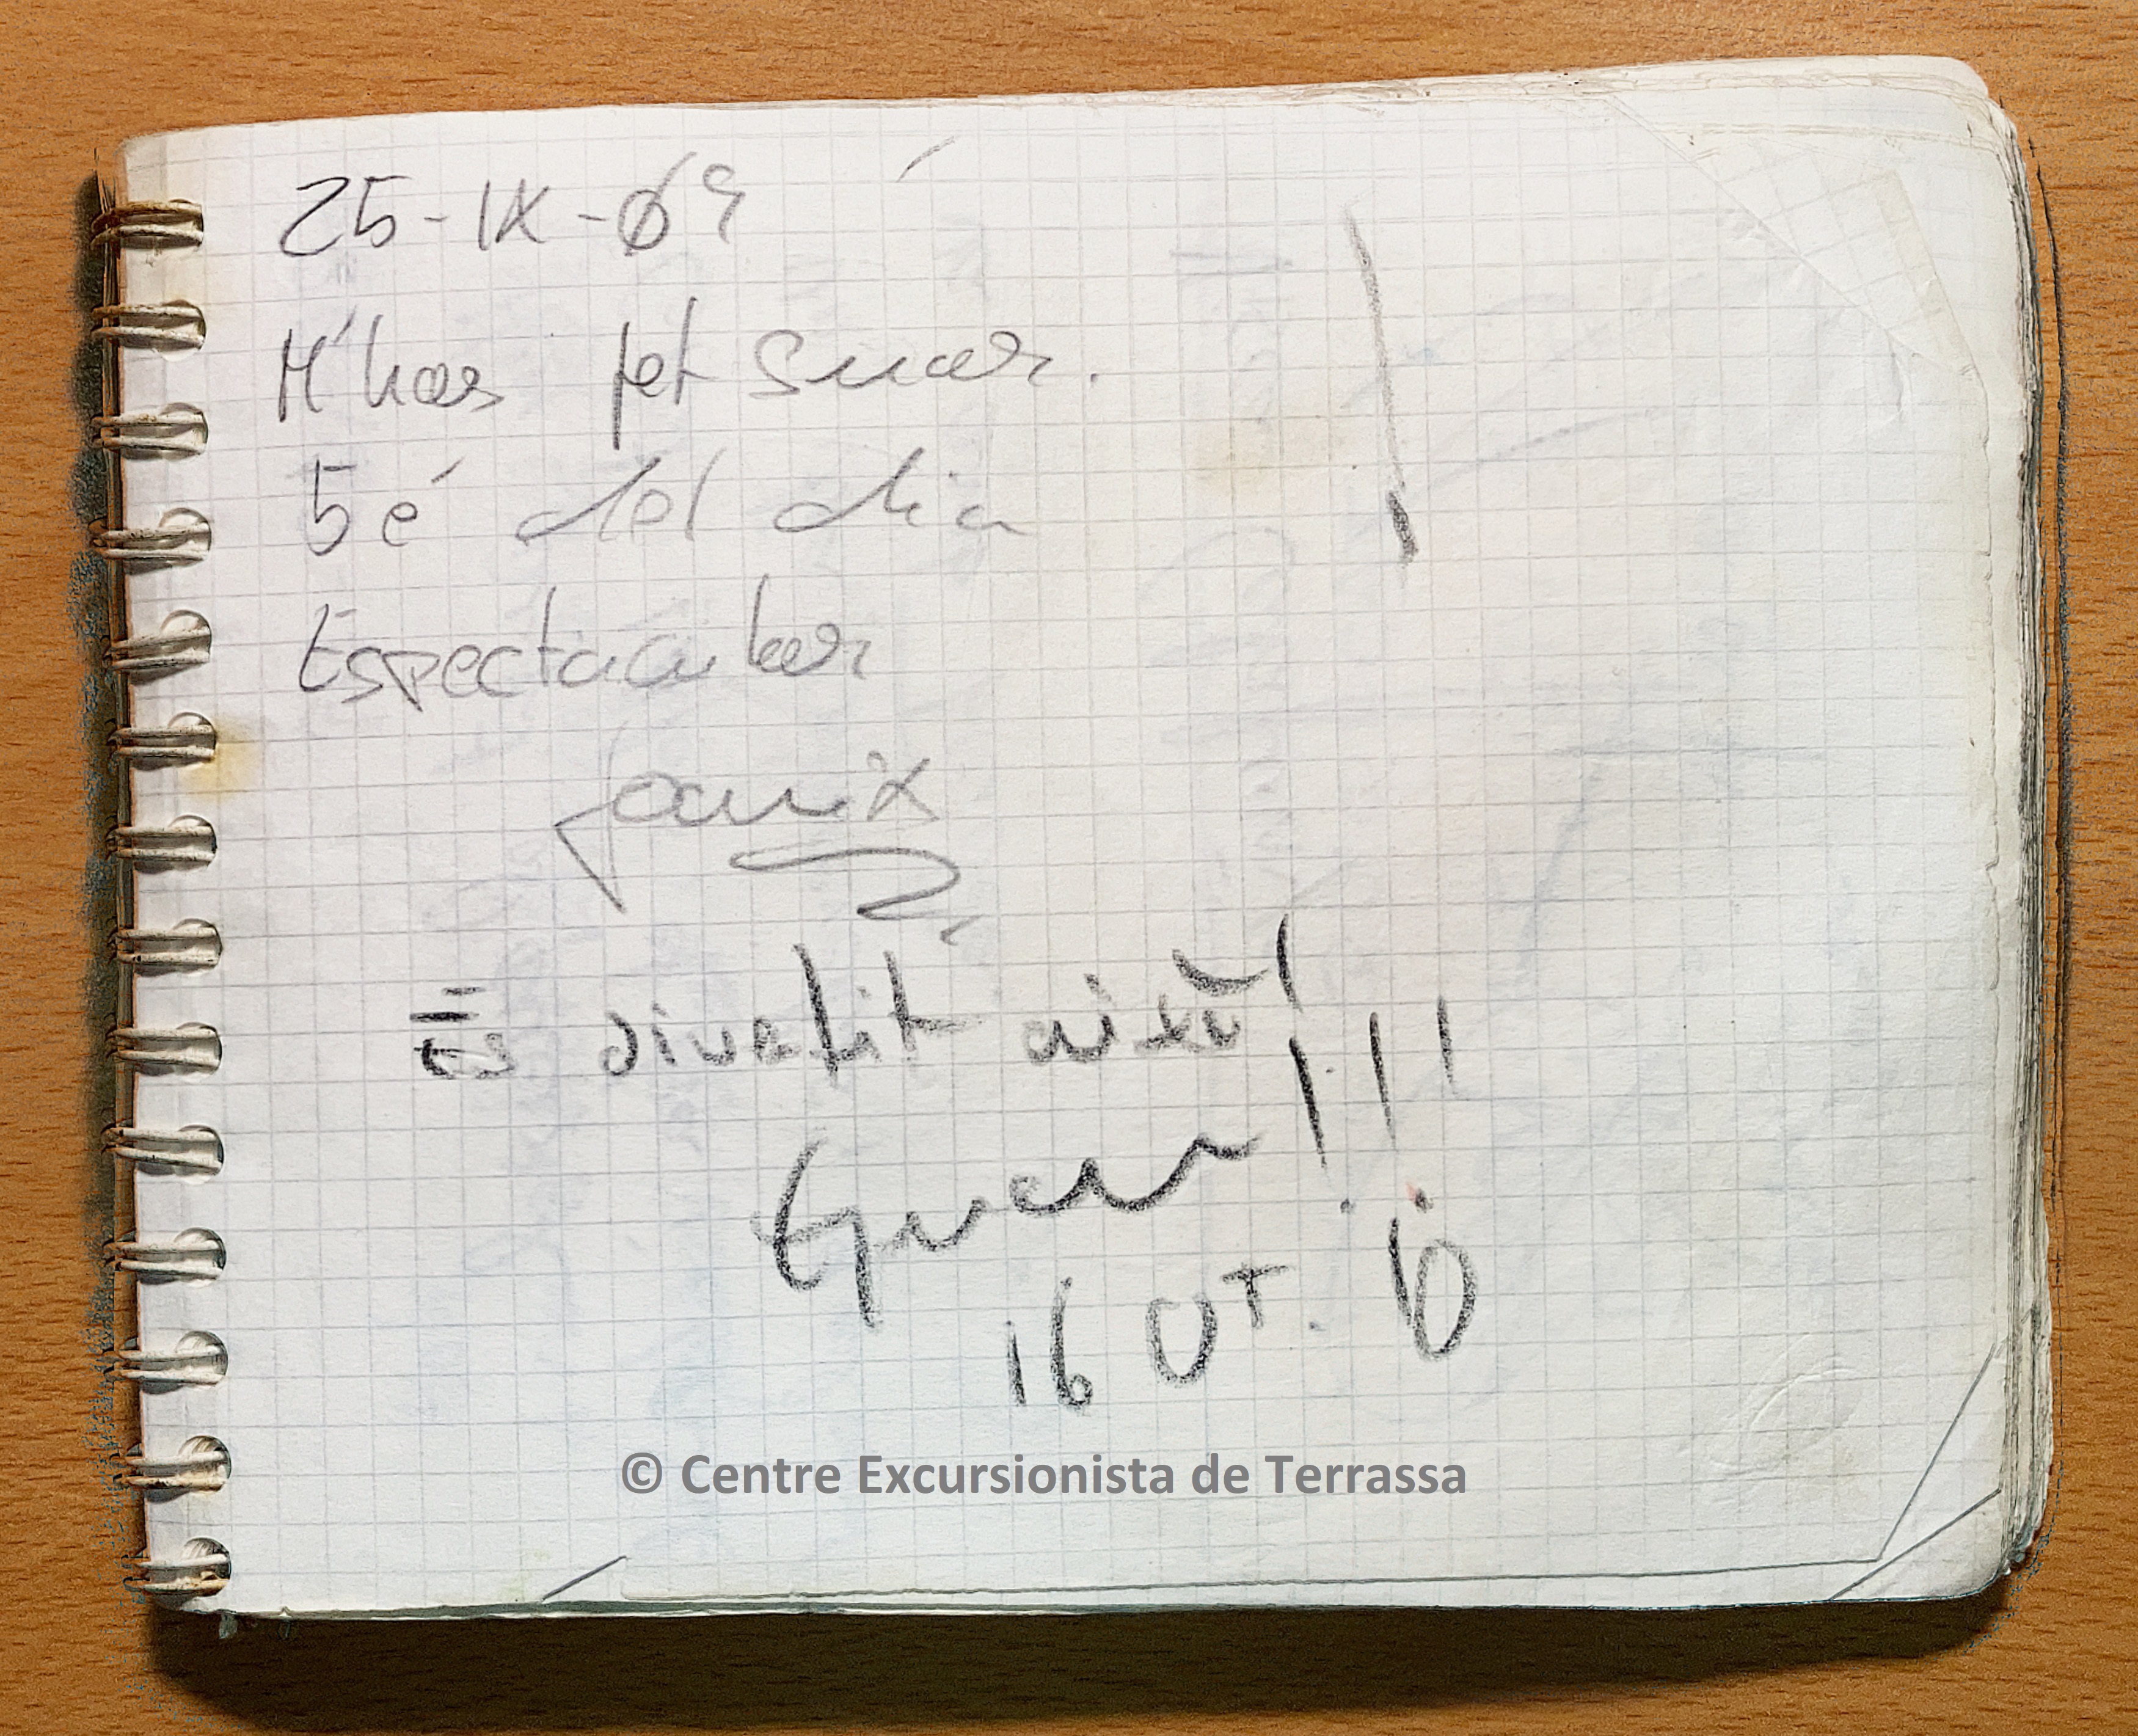 25-IX-09
M'has fet suar.
5é del dia
Espectacular
És divertit això!
!!!
16 OT. 10
© Centre Excursionista de Terrassa